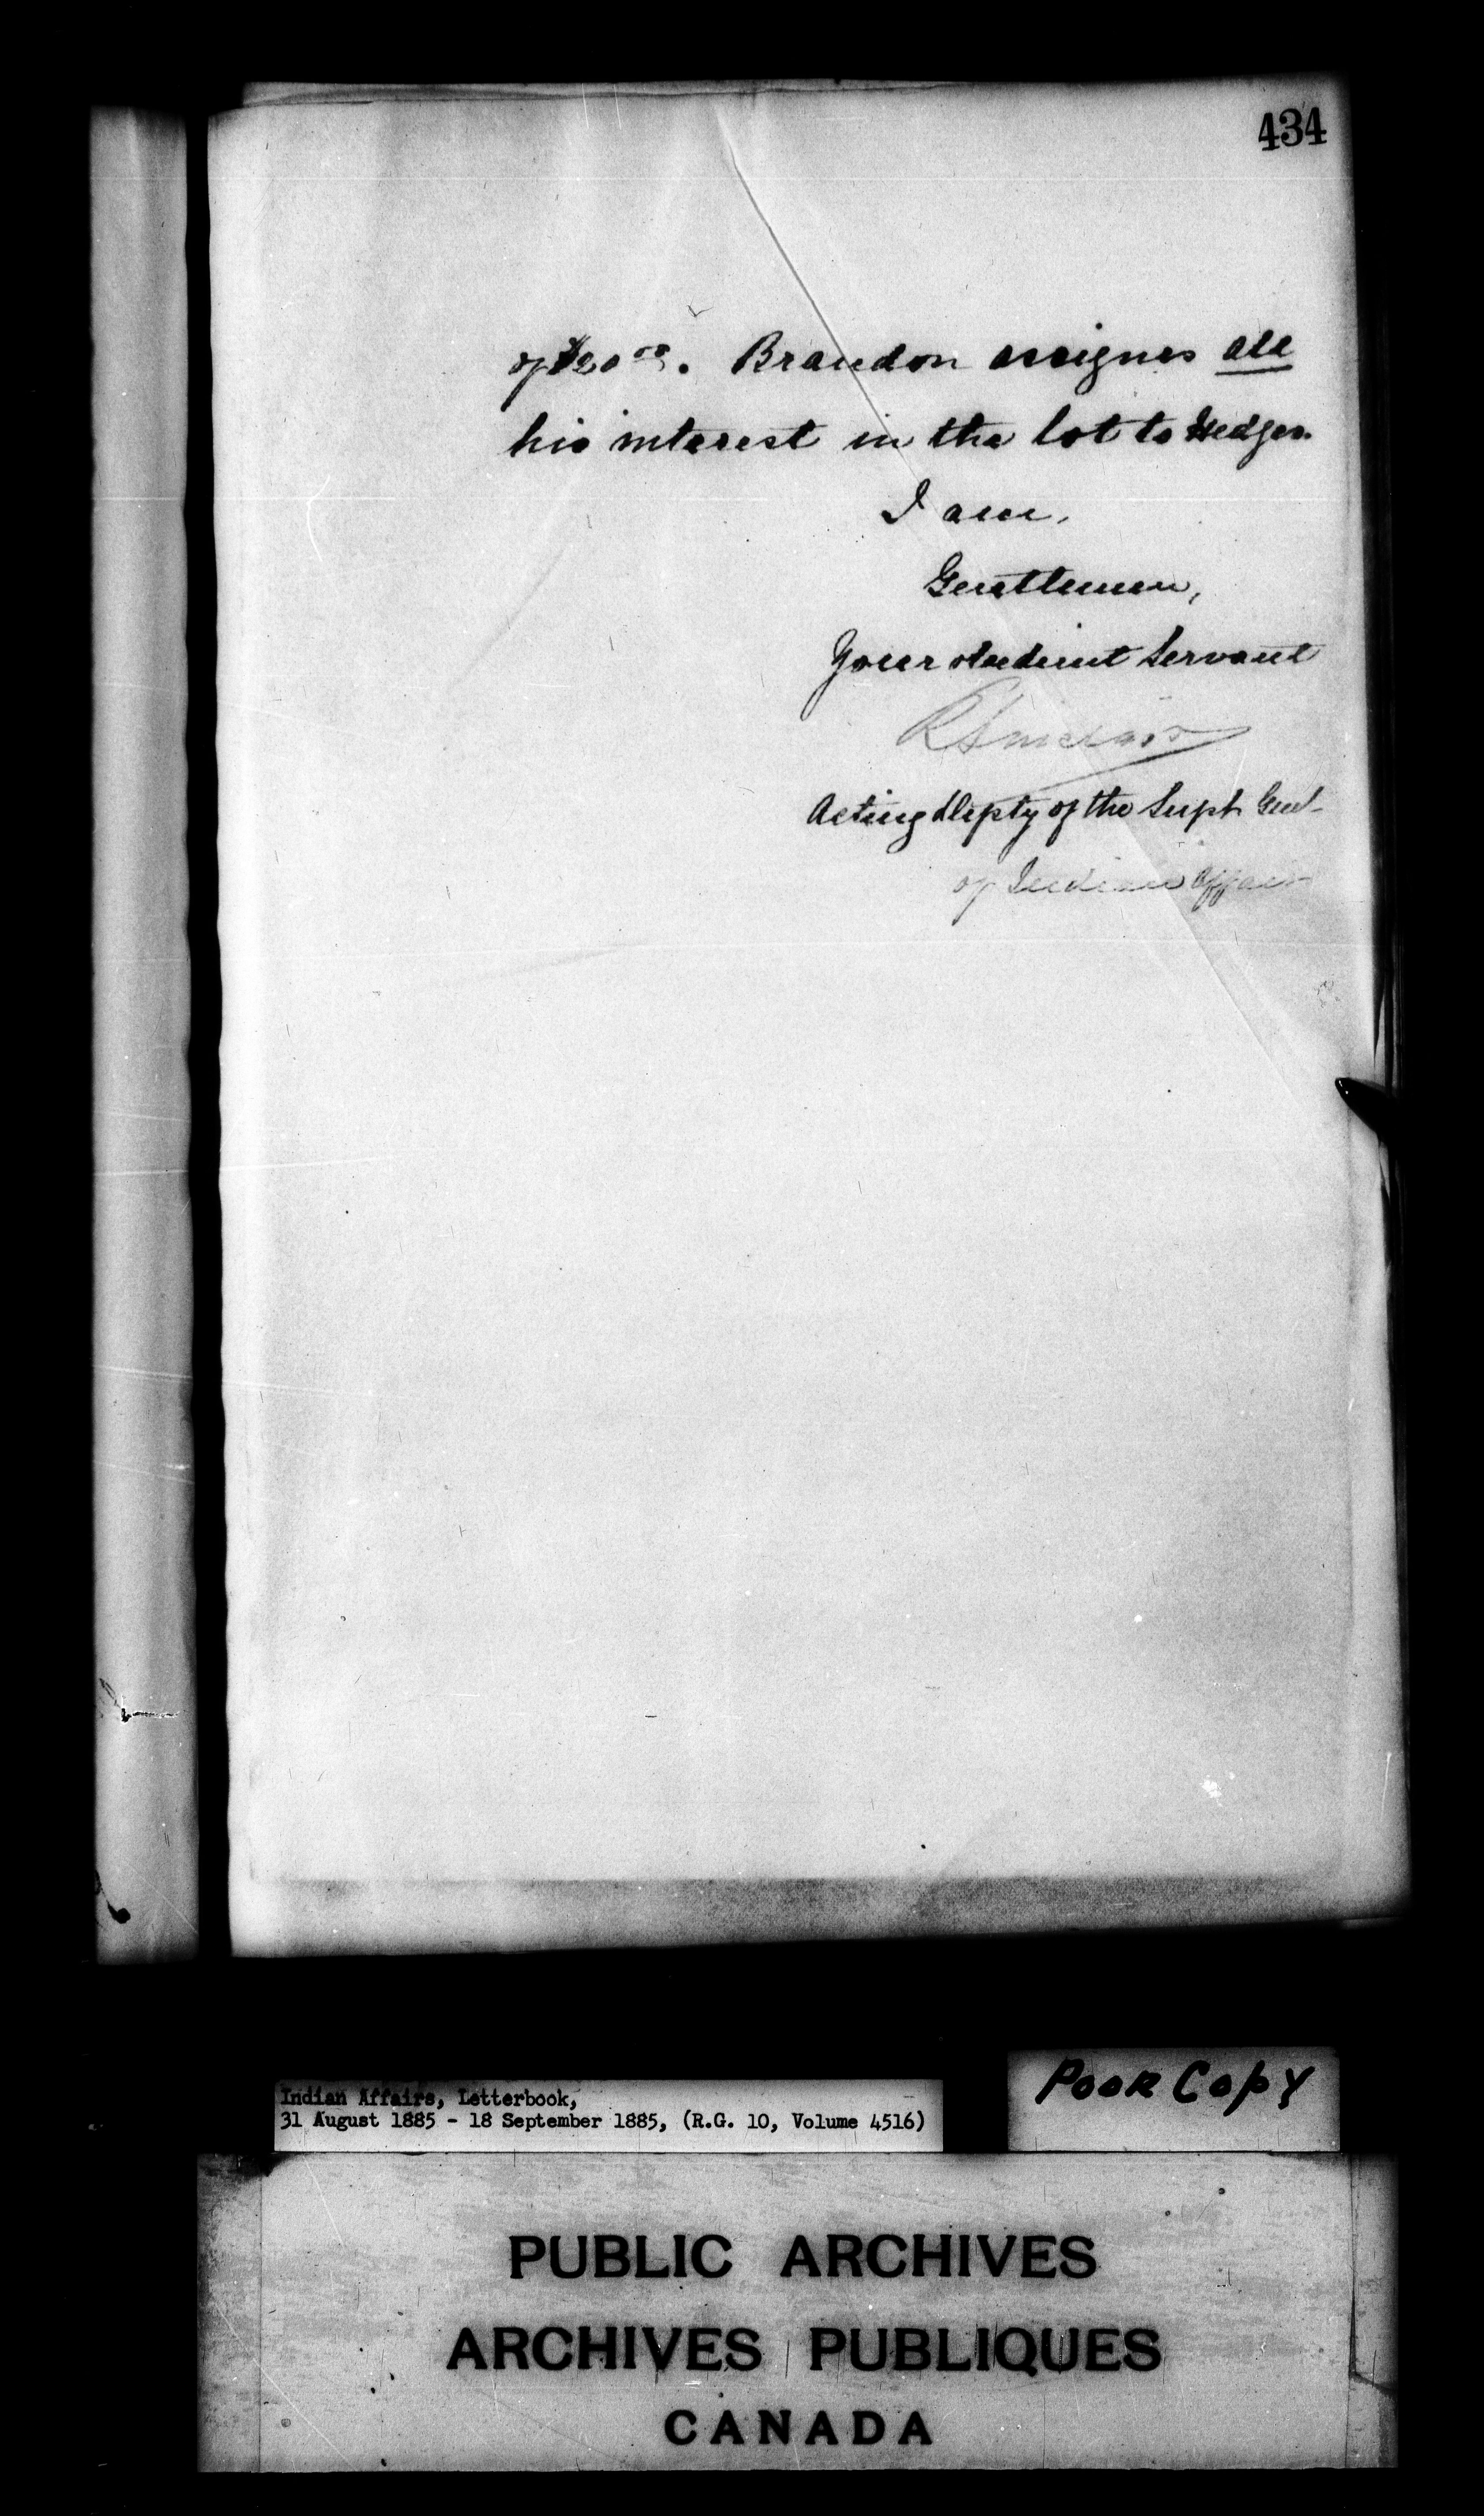 434
of $20.00. Brandon assigns all
his interest in the lot to Hedges.
I am,
Gentlemen,
Your obedient Servant
R Sinclair
Acting Depty of the Supt. Genl.
of Indian Affairs
Indian Affairs, Letterbook,
31 August 1885 - 18 September 1885, (R.G. 10, Volume 4516)
Poor Copy
PUBLIC ARCHIVES
ARCHIVES PUBLIQUES
CANADA